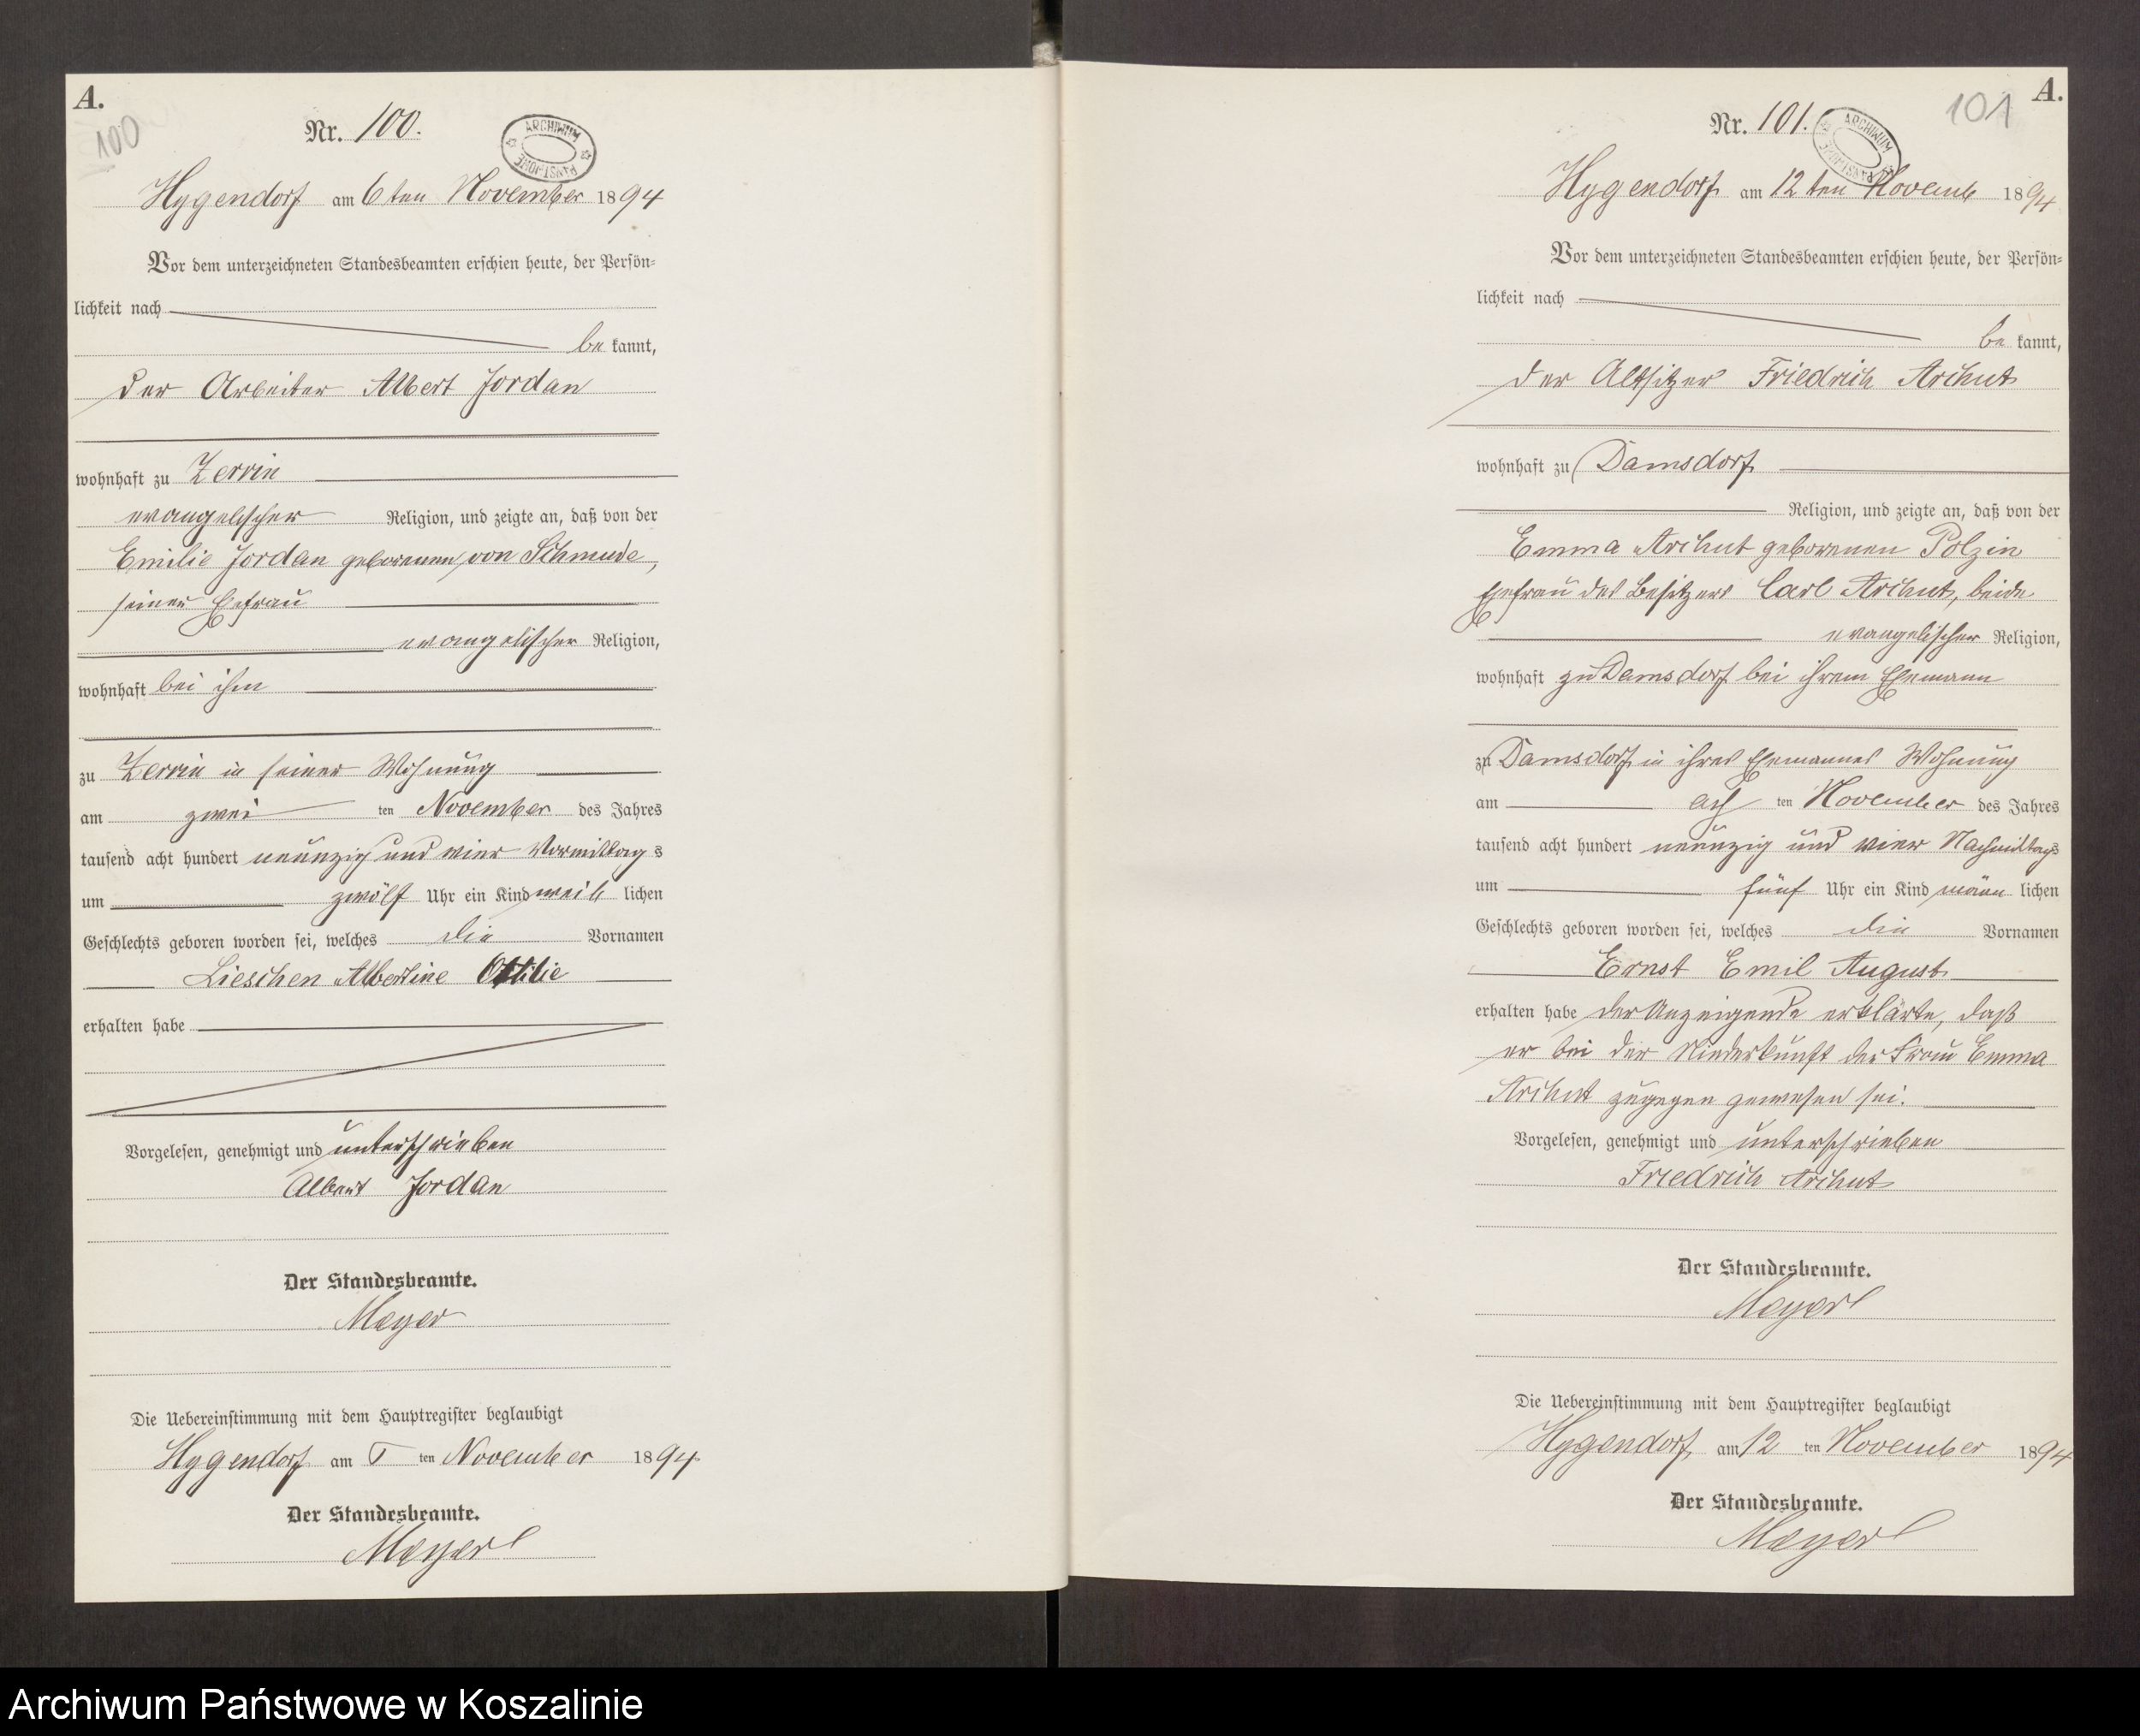 A.
100
Nr. 100.
ARCHIWUM PAŃSTWOWE
Hygendorf am 6ten November 1894
Vor dem unterzeichneten Standesbeamten erschien heute, der Persön=
lichkeit nach
be kannt,
der Arbeiter Albert Jordan
wohnhaft zu Zerrin
evangelischer Religion, und zeigte an, daß von der
Emilie Jordan geborenen von Schmude,
seiner Ehefrau
evangelischer Religion,
wohnhaft bei ihm
zu Zerrin in seiner Wohnung
am zwei ten November des Jahres
tausend acht hundert neunzig und vier Vormittag s
um zwölf Uhr ein Kind weib lichen
Geschlechts geboren worden sei, welches die Vornamen
Lieschen Albertine Ottilie
erhalten habe
Vorgelesen, genehmigt und unterschrieben
Albert Jordan
Der Standesbeamte.
Meyer
Die Uebereinstimmung mit dem Hauptregister beglaubigt
Hygendorf am ten November 1894
Der Standesbeamte.
Meyer
A.
101
Nr. 101.
ARCHIWUM PAŃSTWOWE
Hygendorf am 12ten Novemb 1894
Vor dem unterzeichneten Standesbeamten erschien heute, der Persön=
lichkeit nach
be kannt,
der Altsitzer Friedrich Archut
wohnhaft zu Damsdorf
Religion, und zeigte an, daß von der
Emma Archut geborenen Polzin
Ehefrau des Besitzers Carl Archut, beide
evangelischer Religion,
wohnhaft zu Damsdorf bei ihrem Ehemann
zu Damsdorf in ihres Ehemannes Wohnung
am ach ten November des Jahres
tausend acht hundert neunzig und vier Nachmittags
um fünf Uhr ein Kind männ lichen
Geschlechts geboren worden sei, welches die Vornamen
Ernst Emil August
erhalten habe der Anzeigende erklärte, daß
er bei der Niederkunft der Frau Emma
Archut zugegen gewesen sei.
Vorgelesen, genehmigt und unterschrieben
Friedrich Archut
Der Standesbeamte.
Meyer
Die Uebereinstimmung mit dem Hauptregister beglaubigt
Hygendorf am 12 ten November 1894
Der Standesbeamte.
Meyer
Archiwum Państwowe w Koszalinie